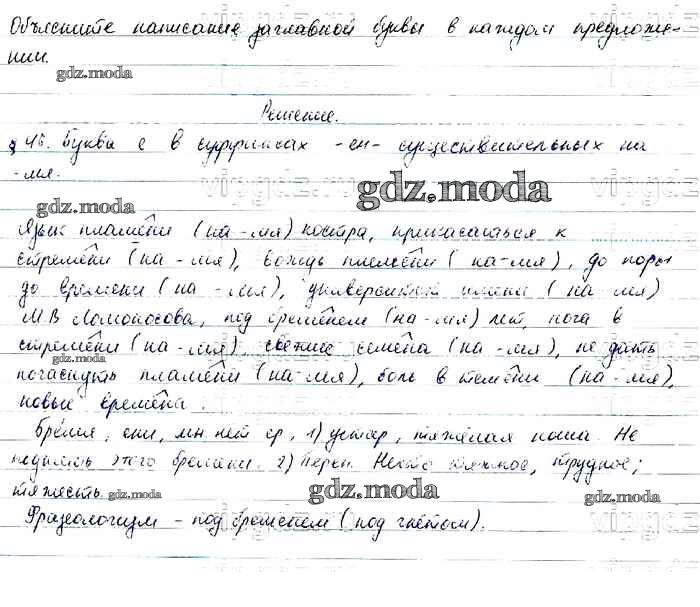 Объясните написание заглавной буквы в каждом предложе-
нии.
gdz.moda
Решение.
§ 46. Буква е в суффиксах -ен- существительных на
-мя.
gdz.moda
gdz.moda
Язык пламени (на -мя) костра, прикасаться к
стремени (на -мя), вождь племени (на -мя), до поры
до времени (на -мя), университет имени (на мя)
МВ Ломоносова, под бременем (на -мя) лет, нога в
стремени (на -мя), свежие семена (на -мя), не дать
gdz.moda
погаснуть пламени (на -мя), боль в темени (на -мя),
новые времена.
Бремя, ени, мн нет ср, 1) устар, тяжёлая ноша. Не
поднять этого бремени. 2) Перен. Нечто тяжкое, трудное;
тяжесть gdz.moda gdz.moda gdz.moda
Фразеологизм - под бременем (под гнётом).